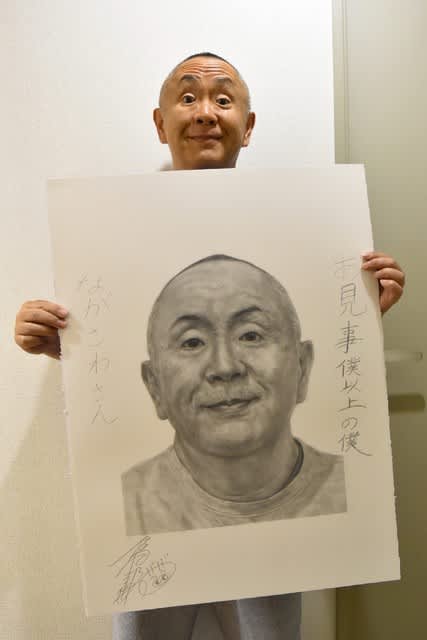 お見事僕以上の僕
ながさわさん